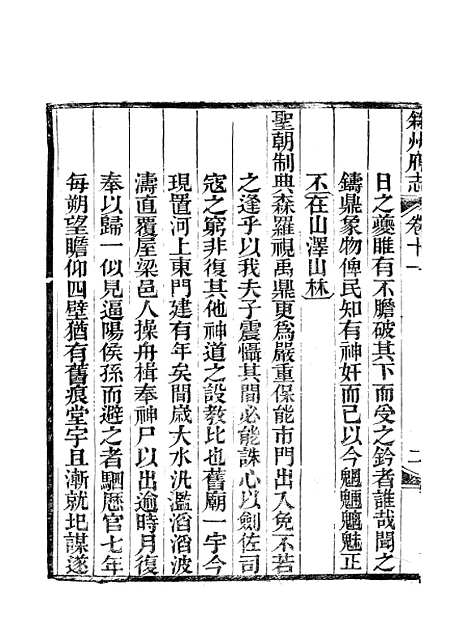 籍州府志 卷十一 二
日之夔雎有不膽破其下而受之鈐者誰哉聞之
鑄鼎象物俾民知有神奸而已以今魍魎魑魅正
不在山澤山林
聖朝制典森羅視禹鼎更為嚴重保能市門出入免不若
之逢乎以我夫子震懾其間必能誅心以劍佐司
寇之窮非復其他神道之設教比也舊廟一宇今
現置河上東門建有年矣間歲大水氿濫滔滔波
濤直覆屋梁邑人操舟楫奉神尸以出逾時月復
奉以歸一似見逼陽侯孫而避之者駰歷官七年
每朔望瞻仰四壁猶有舊痕堂宇且漸就圯謀遂